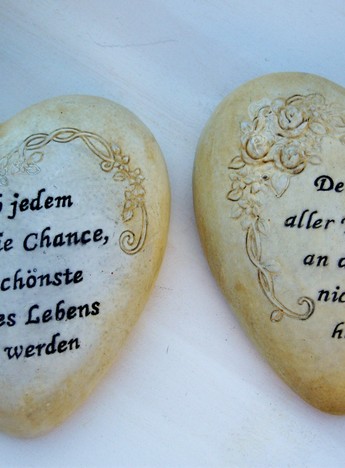 jedem
ie Chance,
chönste
es Lebens
werden
De
aller
an d
nic
h